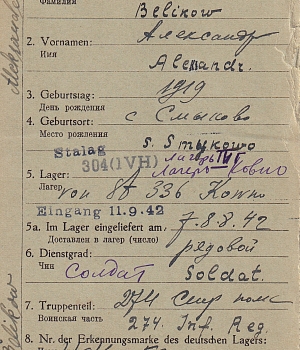 Фамилия
Belikow
2. Vornamen: Александр
Имя
Alexandr.
3. Geburtstag: 1919
День рождения
4. Geburtsort: с Смыково
Место рожления
s. Smykowo
Stalag
304(IVH) лагерь IV
5. Lager: Лагерь-Ковно
Лагер
von St 336 Kowno
Eingang 11.9.42
5a. Im Lager eingeliefert am 7.8.8.42
Доставлен в лагер (число)
6. Dienstgrad: рядовой
Чин
Солдат Soldat.
7. Truppenteil: 274
Воинская часть
274. Inf. Reg.
8. Nr. der Erkennungsmarke des deutschen Lagers:
Belikow